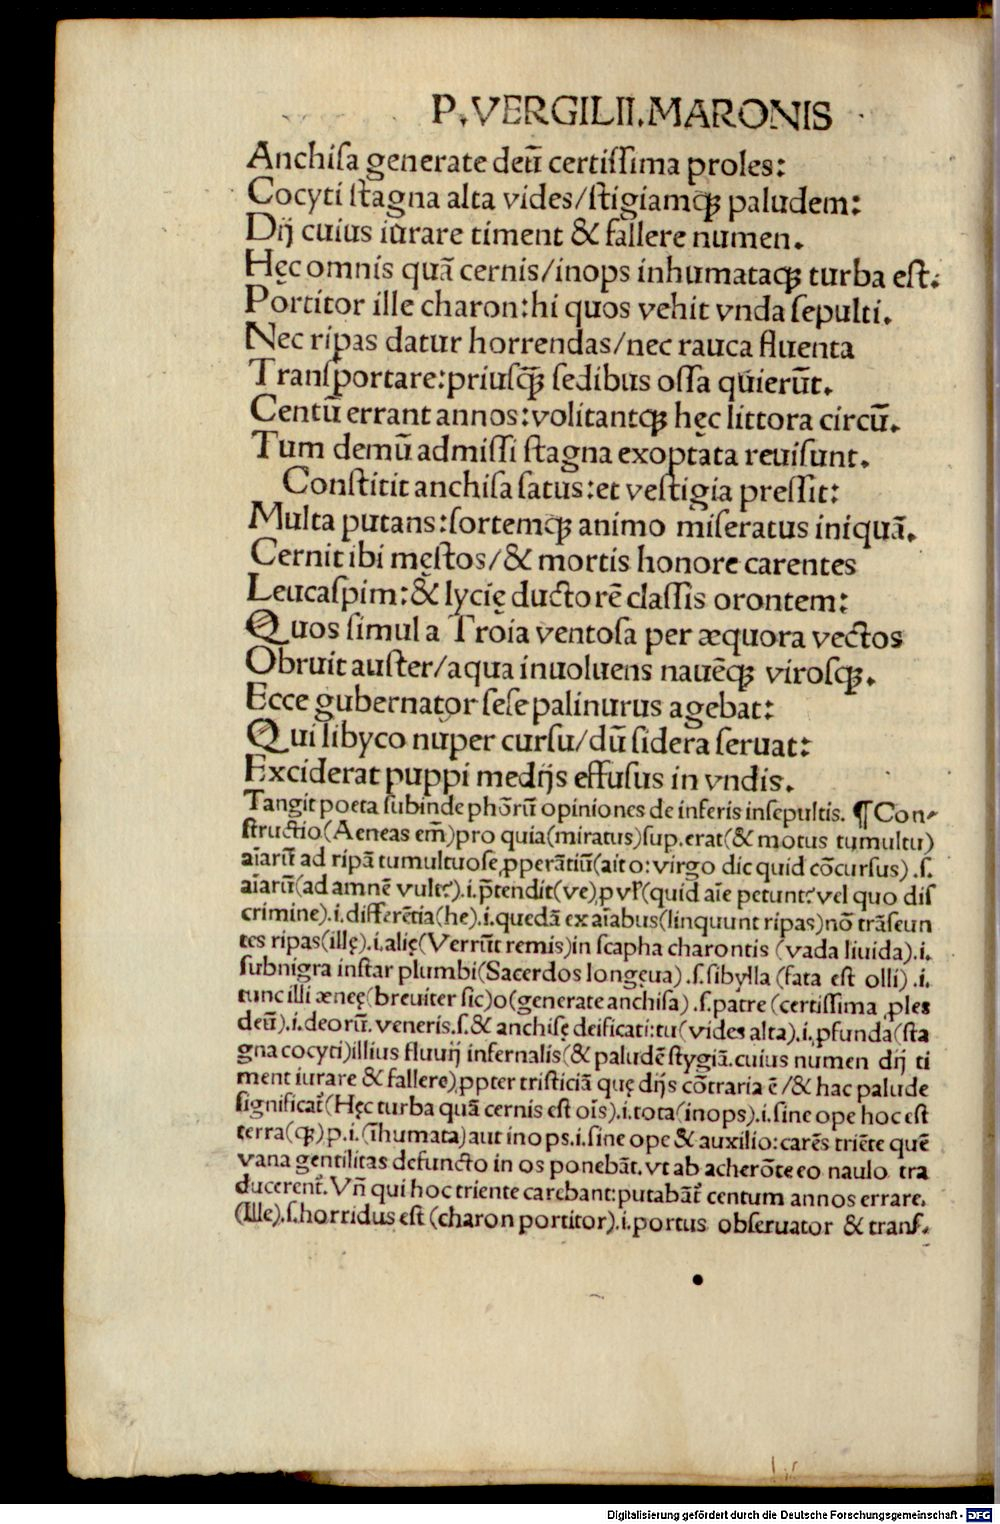 P. VERGILII. MARONIS
Anchiſa generate deū certiſſima proles:
Cocyti ſtagna alta vides/ſtigiamq; paludem:
Dĳ cuius iurare timent & fallere numen.
Hęc omnis quā cernis/inops inhumataq; turba eſt.
Portitor ille charon:hi quos vehit vnda ſepulti.
Nec ripas datur horrendas/nec rauca fluenta
Tranſportare:priuſq̃; ſedibus oſſa quierūt.
Centū errant annos:volitantq; hęc littora circū.
Tum demū admiſſi ſtagna exoptata reuiſunt.
Conſtitit anchiſa ſatus:et veſtigia preſſit:
Multa putans:ſortemq; animo miſeratus iniquā.
Cernit ibi męſtos/& mortis honore carentes
Leucaſpim:& lycię ductorē claſſis orontem:
Quos ſimul a Troia ventoſa per æquora vectos
Obruit auſter/aqua inuoluens nauēq; viroſq;.
Ecce gubernator ſeſe palinurus agebat:
Qui libyco nuper curſu/dū ſidera ſeruat:
Exciderat puppi medĳs effuſus in vndis.
Tangit poeta ſubinde phōrū opiniones de inferis inſepultis. ¶ Con-
ſtructio(Aeneas em̄)pro quia(miratus)ſup.erat(& motus tumultu)
aīarū ad ripā tumultuoſe ꝓperātiū(ait o:virgo dic quid cōcurſus).ſ.
aīarū(ad amnē vult?).i.p̄tendit(ve)p vĺ(quid aīe petunt?vel quo diſ
crimine).i.differētia(he).i.quedā ex aīabus(linquunt ripas)nō trāſeun
tes ripas(illę).i.alię(Verrūt remis)in ſcapha charontis (vada liuida).i.
ſubnigra inſtar plumbi(Sacerdos longęua).ſ.ſibylla (fata eſt olli) .i.
tunc illi æneę(breuiter ſic)o(generate anchiſa).ſ.patre (certiſſima ꝓles
deū).i.deorū. veneris.ſ.& anchiſę deificati:tu(vides alta).i.ꝓfunda(ſta
gna cocyti)illius fluuĳ infernalis(& paludē ſtygiā.cuius numen dĳ ti
ment iurare & fallere)ꝓpter triſticiā quę dĳs cōtraria ē/& hac palude
ſignificat̄(Hęc turba quā cernis eſt oīs).i.tota(inops).i.ſine ope hoc eſt
terra(q;)p.i.(īhumata)aut inops.i.ſine ope & auxilio:carēs triēte quē
vana gentilitas defuncto in os ponebāt.vt ab acherōte eo naulo tra
ducerent̄. Vn̄ qui hoc triente carebant:putabāt̄ centum annos errare.
(Ille).ſ.horridus eſt (charon portitor).i.portus obſeruator & tranſ.
Digitalisierung gefördert durch die Deutsche Forschungsgemeinschaft - DFG